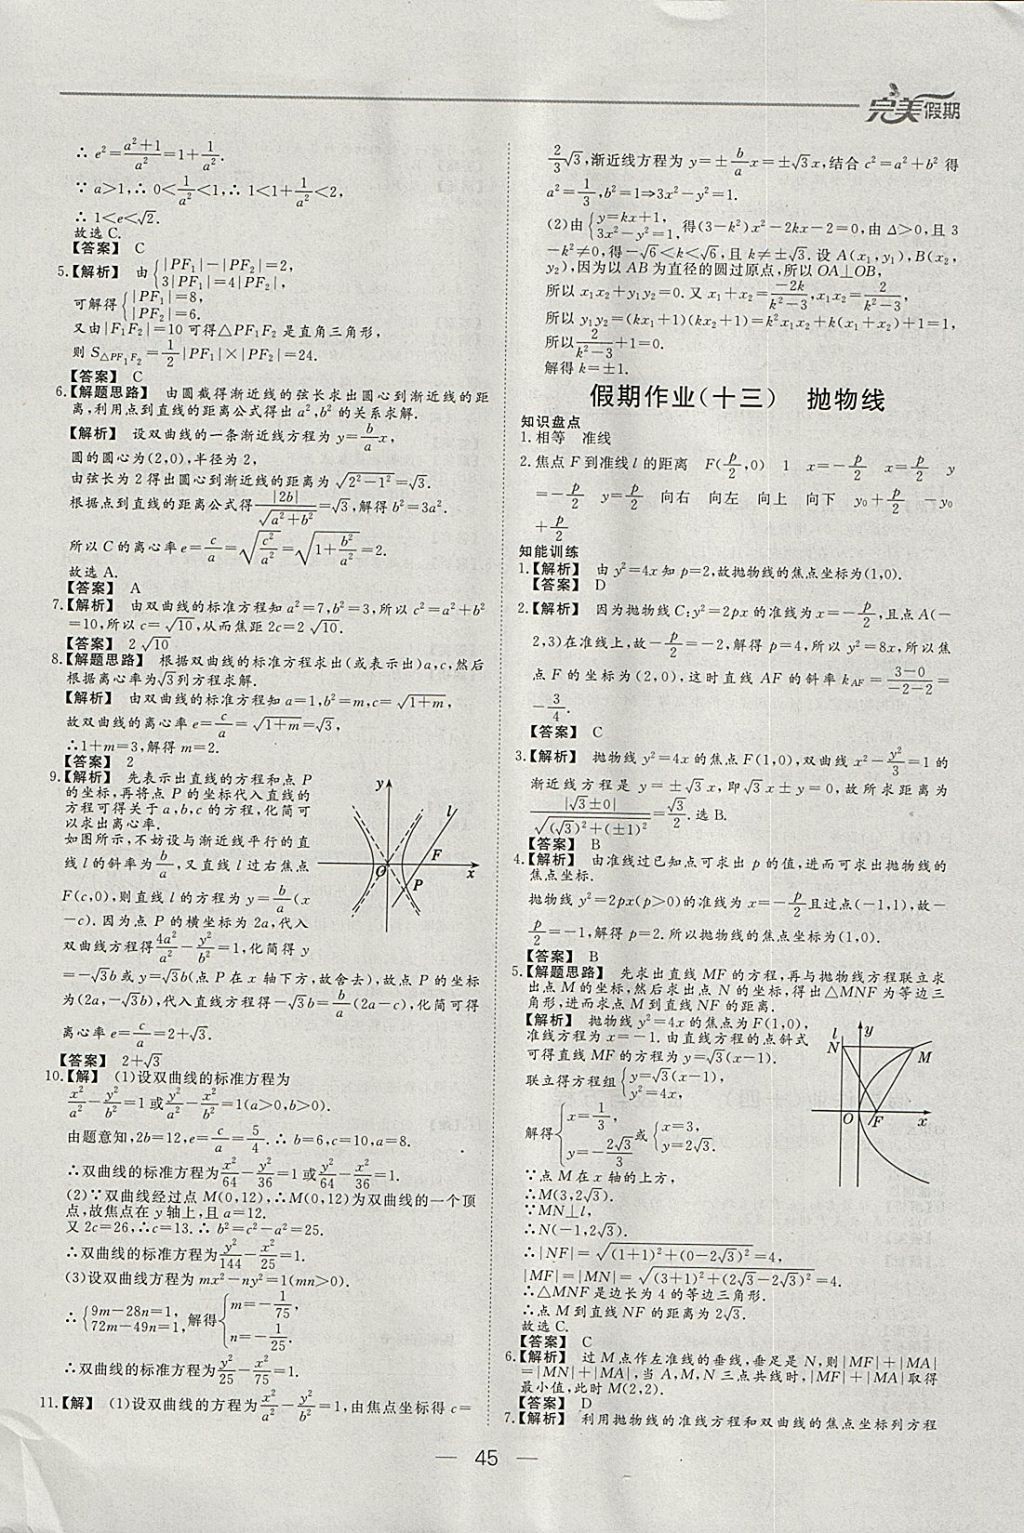 完美假期
∴ e²=(a²+1)/a²=1+1/a².
∵ a>1,∴ 0<1/a²<1,∴ 1<1+1/a²<2,
∴ 1<e<√2.
故选C.
【答案】 C
5.【解析】 由{|PF₁|-|PF₂|=2, 3|PF₁|=4|PF₂|,
可解得{|PF₁|=8, |PF₂|=6.
又由|F₁F₂|=10可得△PF₁F₂是直角三角形,
则S△PF₁F₂=1/2|PF₁|×|PF₂|=24.
【答案】 C
6.【解题思路】 由圆截得渐近线的弦长求出圆心到渐近线的距
离,利用点到直线的距离公式得出a²,b²的关系求解.
【解析】 设双曲线的一条渐近线方程为y=b/a x,
圆的圆心为(2,0),半径为2,
由弦长为2得出圆心到渐近线的距离为√(2²-1²)=√3.
根据点到直线的距离公式得|2b|/√(a²+b²)=√3,解得b²=3a².
所以C的离心率e=c/a=√(c²/a²)=√(1+b²/a²)=2.
故选A.
【答案】 A
7.【解析】 由双曲线的标准方程知a²=7,b²=3,所以c²=a²+b²
=10,所以c=√10,从而焦距2c=2√10.
【答案】 2√10
8.【解题思路】 根据双曲线的标准方程求出(或表示出)a,c,然后
根据离心率为√3列方程求解.
【解析】 由双曲线的标准方程知a=1,b²=m,c=√(1+m),
故双曲线的离心率e=c/a=√(1+m)=√3,
∴1+m=3,解得m=2.
【答案】 2
9.【解析】 先表示出直线的方程和点P
的坐标,再将点P的坐标代入直线的
方程可得关于a,b,c的方程,化简可
以求出离心率.
如图所示,不妨设与渐近线平行的直
线l的斜率为b/a,又直线l过右焦点
F(c,0),则直线l的方程为y=b/a(x
-c).因为点P的横坐标为2a,代入
双曲线方程得4a²/a²-y²/b²=1,化简得y
=-√3b或y=√3b(点P在x轴下方,故舍去),故点P的坐标
为(2a,-√3b),代入直线方程得-√3b=b/a(2a-c),化简可得
离心率e=c/a=2+√3.
y
l
F
O
P
x
【答案】 2+√3
10.【解】 (1)设双曲线的标准方程为
x²/a²-y²/b²=1或y²/a²-x²/b²=1(a>0,b>0).
由题意知,2b=12,e=c/a=5/4.∴ b=6,c=10,a=8.
∴双曲线的标准方程为x²/64-y²/36=1或y²/64-x²/36=1.
(2)∵双曲线经过点M(0,12),∴M(0,12)为双曲线的一个顶
点,故焦点在y轴上,且a=12.
又2c=26,∴c=13.∴ b²=c²-a²=25.
∴双曲线的标准方程为y²/144-x²/25=1.
(3)设双曲线方程为mx²-ny²=1(mn>0).
∴{9m-28n=1, 72m-49n=1, 解得{m=-1/75, n=-1/25.
∴双曲线的标准方程为y²/25-x²/75=1.
11.【解】 (1)设双曲线的方程为x²/a²-y²/b²=1,由焦点坐标得c=
2/3√3,渐近线方程为y=±b/a x=±√3x,结合c²=a²+b²得
a²=1/3,b²=1⇒3x²-y²=1.
(2)由{y=kx+1, 3x²-y²=1. 得(3-k²)x²-2kx-2=0,由Δ>0,且3
-k²≠0,得-√6<k<√6,且k≠±√3.设A(x₁,y₁),B(x₂,
y₂),因为以AB为直径的圆过原点,所以OA⊥OB,
所以x₁x₂+y₁y₂=0.又x₁+x₂=-2k/(k²-3),x₁x₂=2/(k²-3),
所以y₁y₂=(kx₁+1)(kx₂+1)=k²x₁x₂+k(x₁+x₂)+1=1,
所以2/(k²-3)+1=0.
解得k=±1.
假期作业(十三) 抛物线
知识盘点
1.相等 准线
2.焦点F到准线l的距离 F(p/2,0) 1 x=-p/2 x=p/2 y
=-p/2 y=p/2 向右 向左 向上 向下 y₀+p/2 -y₀
+p/2
知能训练
1.【解析】 由y²=4x知p=2,故抛物线的焦点坐标为(1,0).
【答案】 D
2.【解析】 因为抛物线C:y²=2px的准线为x=-p/2,且点A(-
2,3)在准线上,故-p/2=-2,解得p=4,所以y²=8x,所以焦
点F的坐标为(2,0),这时直线AF的斜率kAF=(3-0)/(-2-2)=
-3/4.
【答案】 C
3.【解析】 抛物线y²=4x的焦点F(1,0),双曲线x²-y²/3=1的
渐近线方程是y=±√3x,即√3x±y=0,故所求距离为
|√3±0|/√((√3)²+(±1)²)=√3/2.选B.
【答案】 B
4.【解析】 由准线过已知点可求出p的值,进而可求出抛物线的
焦点坐标.
抛物线y²=2px(p>0)的准线为x=-p/2且过点(-1,1),故-
p/2=-1,解得p=2.所以抛物线的焦点坐标为(1,0).
【答案】 B
5.【解题思路】 先求出直线MF的方程,再与抛物线方程联立求
出点M的坐标,然后求出点N的坐标,得出△MNF为等边三
角形,进而求点M到直线NF的距离.
【解析】 抛物线y²=4x的焦点为F(1,0),
准线方程为x=-1.由直线方程的点斜式
可得直线MF的方程为y=√3(x-1).
联立得方程组{y=√3(x-1), y²=4x,
解得{x=1/3, y=-2√3/3 或{x=3, y=2√3.
l
y
N
M
O
F
x
∵点M在x轴的上方,
∴M(3,2√3).
∵MN⊥l,
∴N(-1,2√3).
∴|NF|=√((1+1)²+(0-2√3)²)=4,
|MF|=|MN|=√((3+1)²+(2√3-2√3)²)=4.
∴△MNF是边长为4的等边三角形.
∴点M到直线NF的距离为2√3.
故选C.
【答案】 C
6.【解析】 过M点作左准线的垂线,垂足是N,则|MF|+|MA|
=|MN|+|MA|,当A,M,N三点共线时,|MF|+|MA|取得
最小值,此时M(2,2).
【答案】 D
7.【解析】 利用抛物线的准线方程和双曲线的焦点坐标列方程
— 45 —